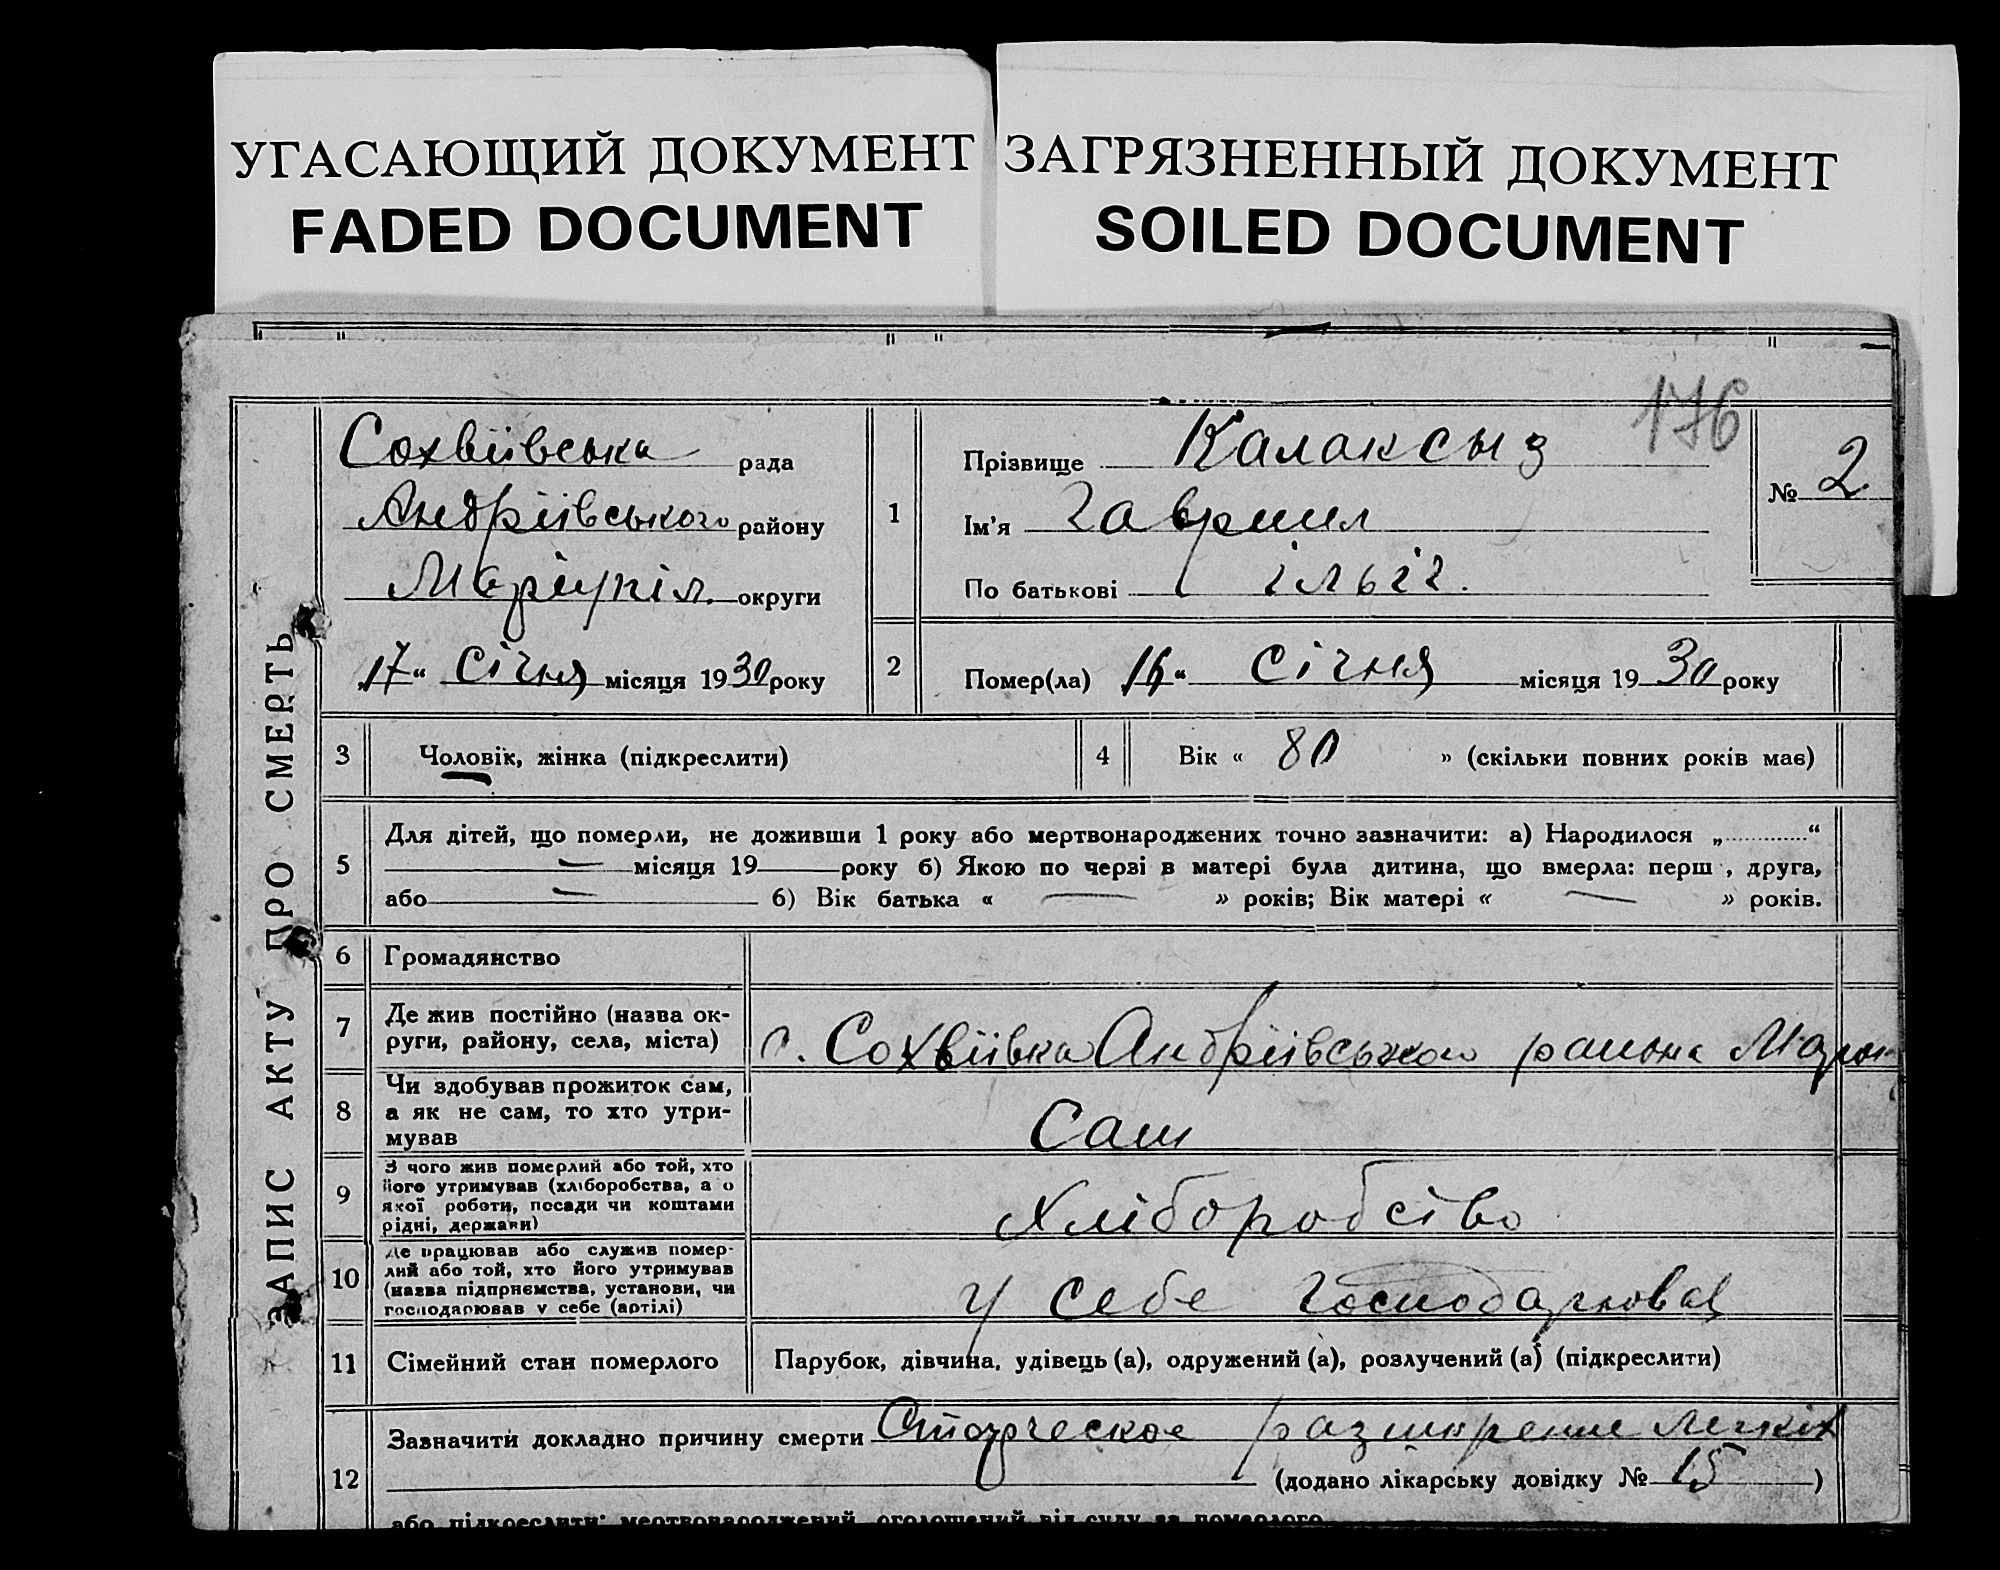 УГАСАЮЩИЙ ДОКУМЕНТ
FADED DOCUMENT
ЗАГРЯЗНЕННЫЙ ДОКУМЕНТ
SOILED DOCUMENT
176
ЗАПИС АКТУ ПРО СМЕРТЬ
Сохвіївська рада
Андріївського району
Маріупіл. округи
17 “ Січня місяця 1930 року
1
Прізвище Калаксыз
Ім'я Гавриил
По батькові Ілліч.
№ 2
2
Помер(ла) 16 “ Січня місяця 1930 року
3 Чоловік, жінка (підкреслити)
4 Вік « 80 » (скільки повних років має)
5 Для дітей, що померли, не доживши 1 року або мертвонароджених точно зазначити: а) Народилося „ “
— місяця 19 року б) Якою по черзі в матері була дитина, що вмерла: перш , друга,
або — 6) Вік батька « — » років; Вік матері « — » років.
6 Громадянство
7 Де жив постійно (назва ок-
руги, району, села, міста)
с. Сохвіївка Андріївського района
8 Чи здобував прожиток сам,
а як не сам, то хто утри-
мував
Сам
9 З чого жив померлий або той, хто
його утримував (хліборобства, а о
якої роботи, посади чи коштами
рідні, держави)
Хліборобство
10 Де працював або служив помер-
лий або той, хто його утримував
(назва підприємства, установи, чи
господарював у себе (артілі)
у себе господарював
11 Сімейний стан померлого
Парубок, дівчина, удівець (а), одружений (а), розлучений (а) (підкреслити)
12 Зазначити докладно причину смерти расширение легких
(додано лікарську довідку № 15 )
або підкреслити: мертвонароджений, оголошений від суду за померлого